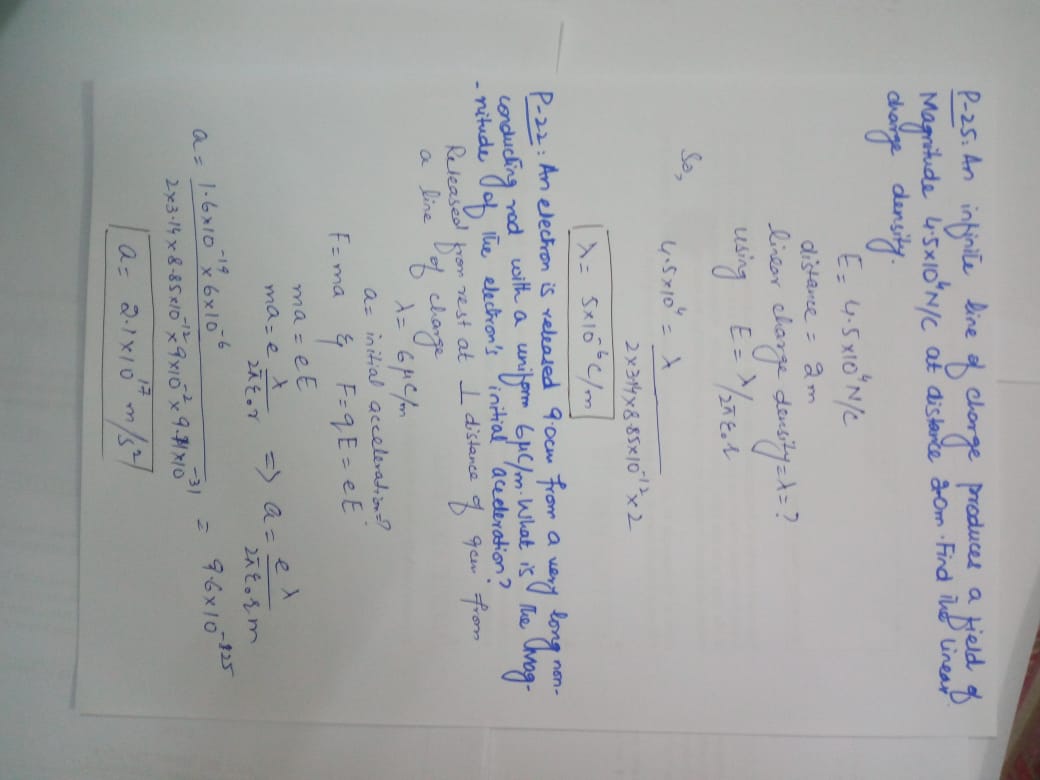 P-25: An infinite line of charge produces a field of
Magnitude 4.5x10⁴N/C at distance 2.0m. Find the linear
charge density.
E = 4.5x10⁴N/C
distance = 2m
linear charge density = λ = ?
using E = λ/2πε₀r
So,
4.5x10⁴ = λ / 2x3.14x8.85x10⁻¹²x2
λ = 5x10⁻⁶C/m
P-22: An electron is released 9.0cm from a very long non-
conducting rod with a uniform 6μC/m. What is the Mag-
-nitude of the electron's initial acceleration?
Released from rest at ⊥ distance of 9cm from
a line of charge
λ = 6μC/m
a = initial acceleration = ?
F = ma & F = qE = eE
ma = eE
ma = e λ/2πε₀r => a = eλ/2πε₀rm
a = 1.6x10⁻¹⁹x6x10⁻⁶ / 2x3.14x8.85x10⁻¹²x9x10⁻²x9. x10⁻³¹ = 9.6x10
a = 2.1x10¹⁷ m/s²